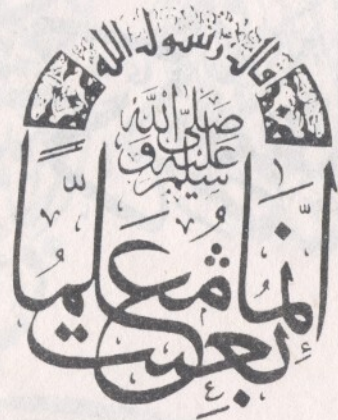 قال رسول الله
صلى الله عليه وسلم
إِنَّمَا بُعِثْتُ مُعَلِّمًا